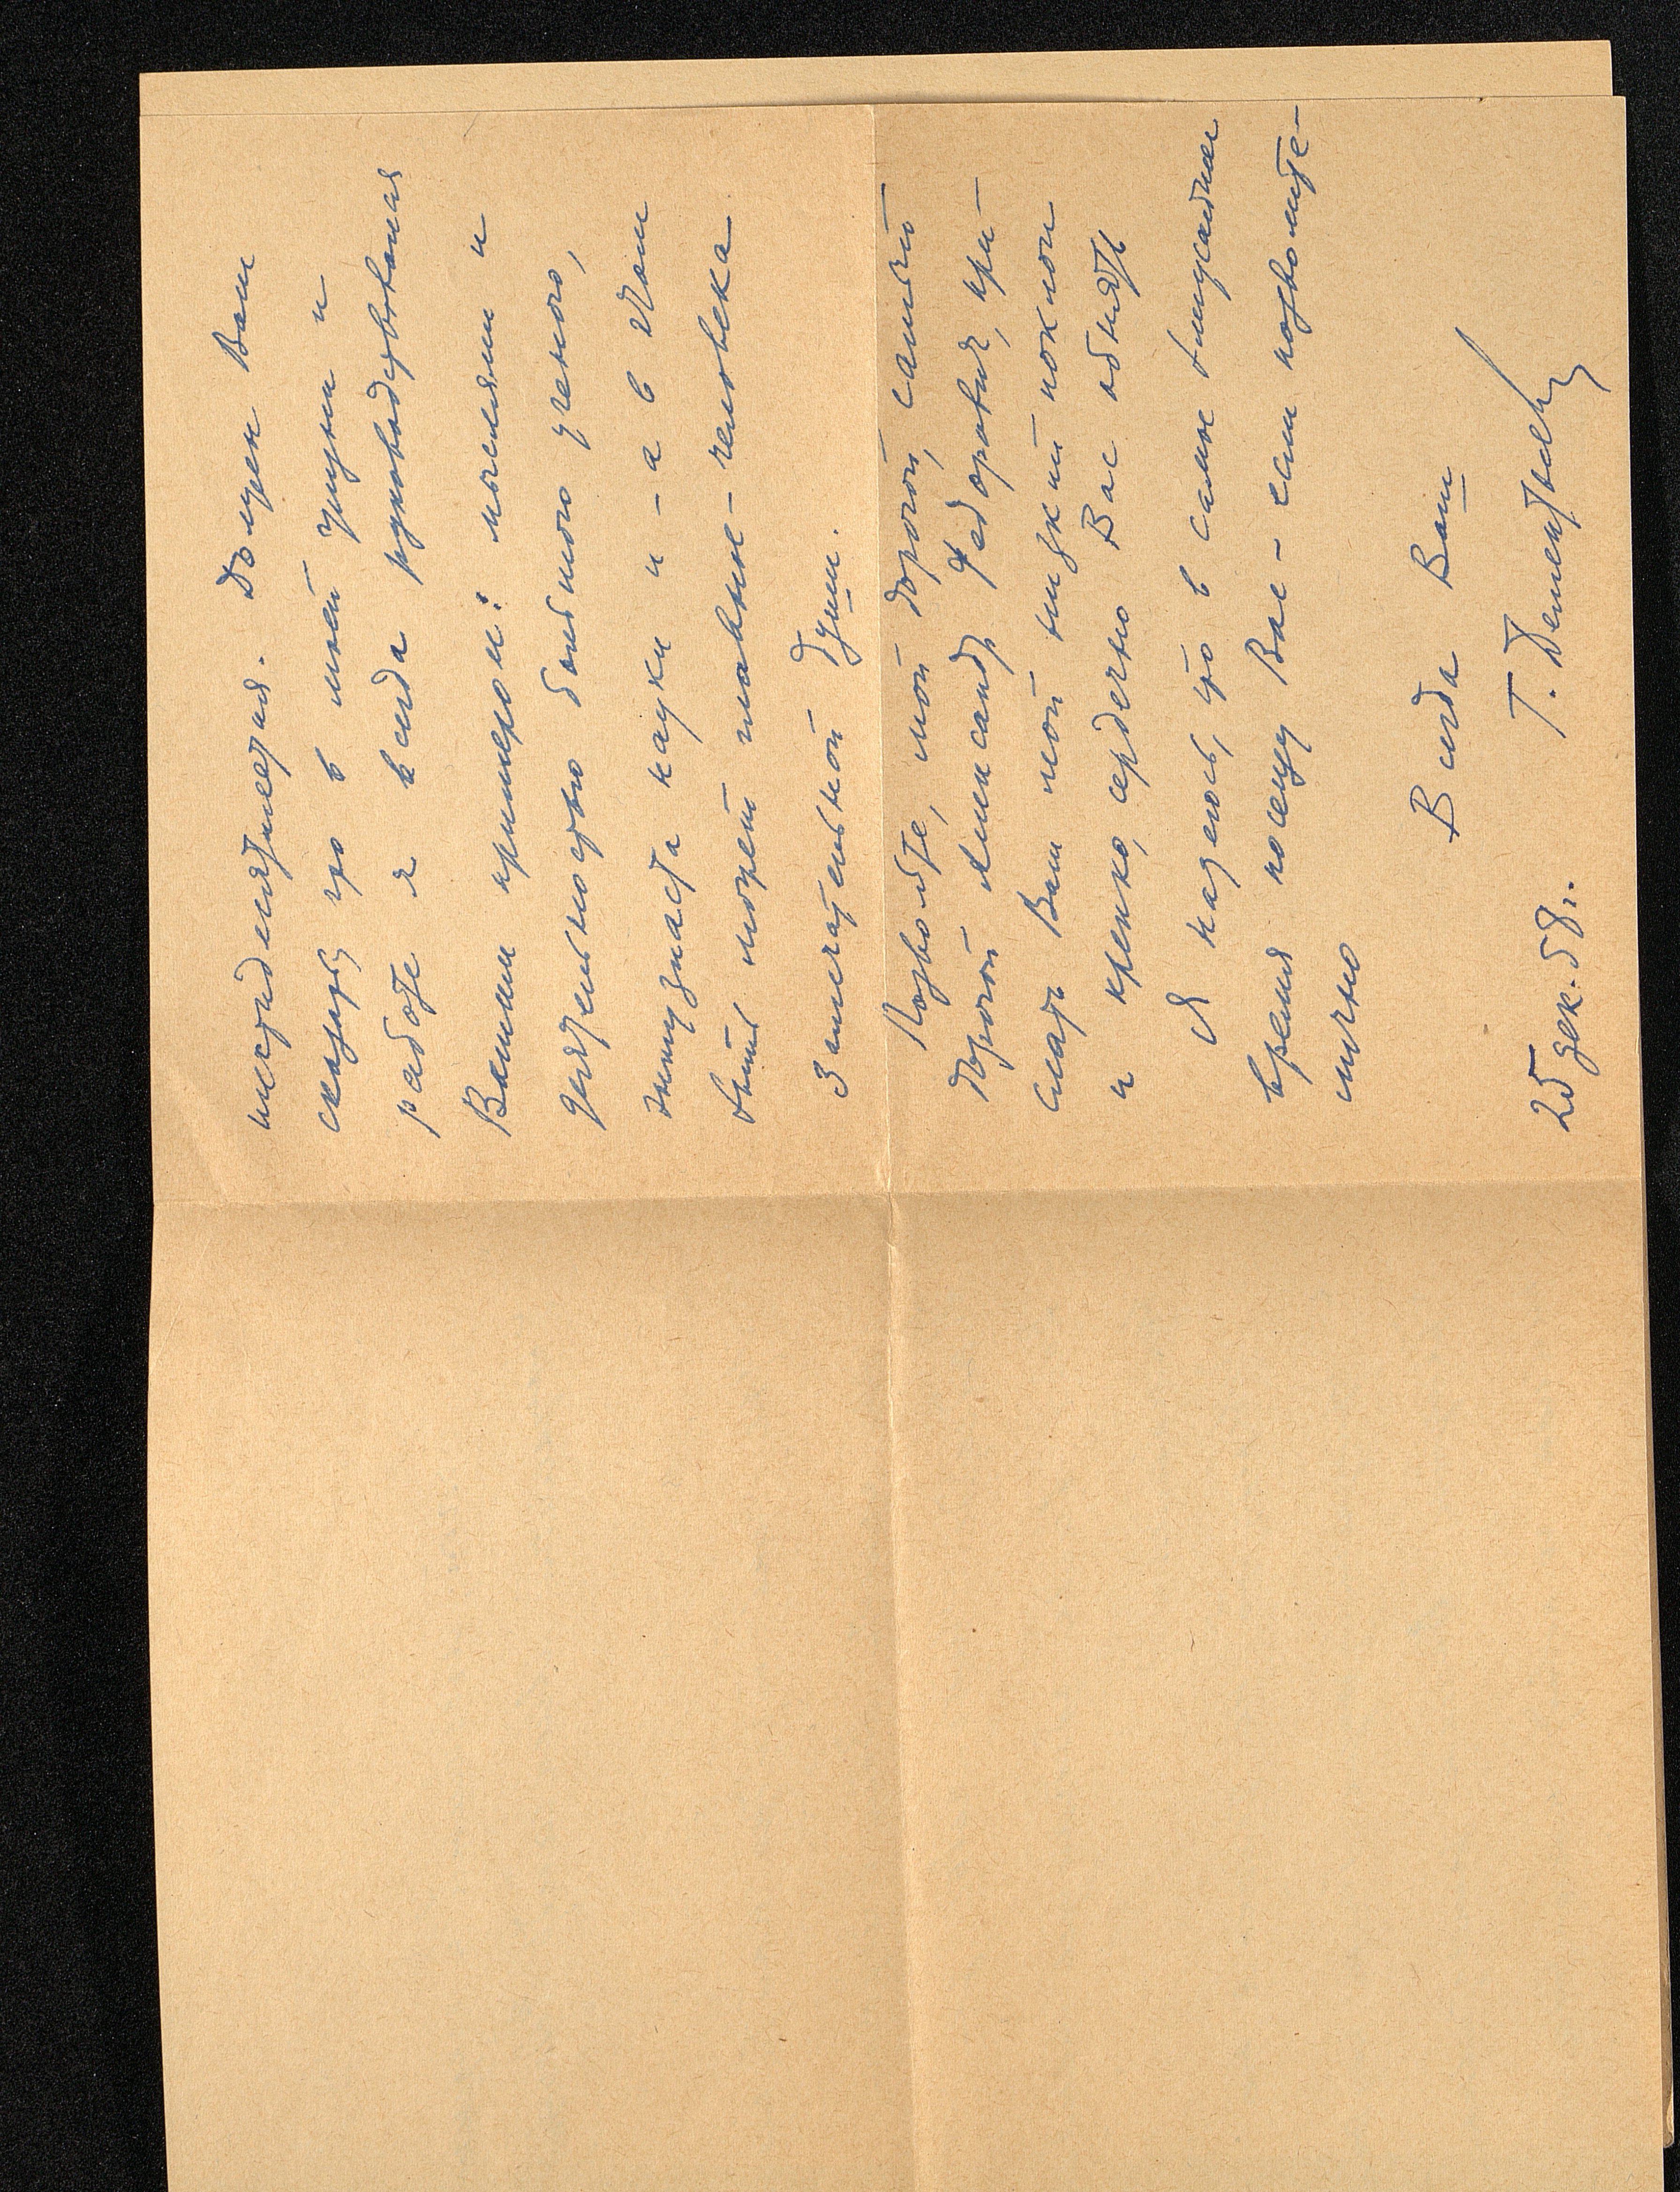 шестидесятилетия. Должен Вам
сказать, что в моей жизни и
работе я всегда руководствовался
Вашим примером: мыслями и
деятельностью большого ученого,
энтузиаста науки и – а в этом
быть может главное – человека
замечательной души.
Позвольте, мой дорогой, самый
дорогой Александр Федорович, при-
слать Вам мой низкий поклон
и крепко, сердечно Вас обнять
Я надеюсь, что в самое ближайшее
время посещу Вас – если позволите –
лично
Всегда Ваш
Г. Дементьев
25 дек. 58 г.